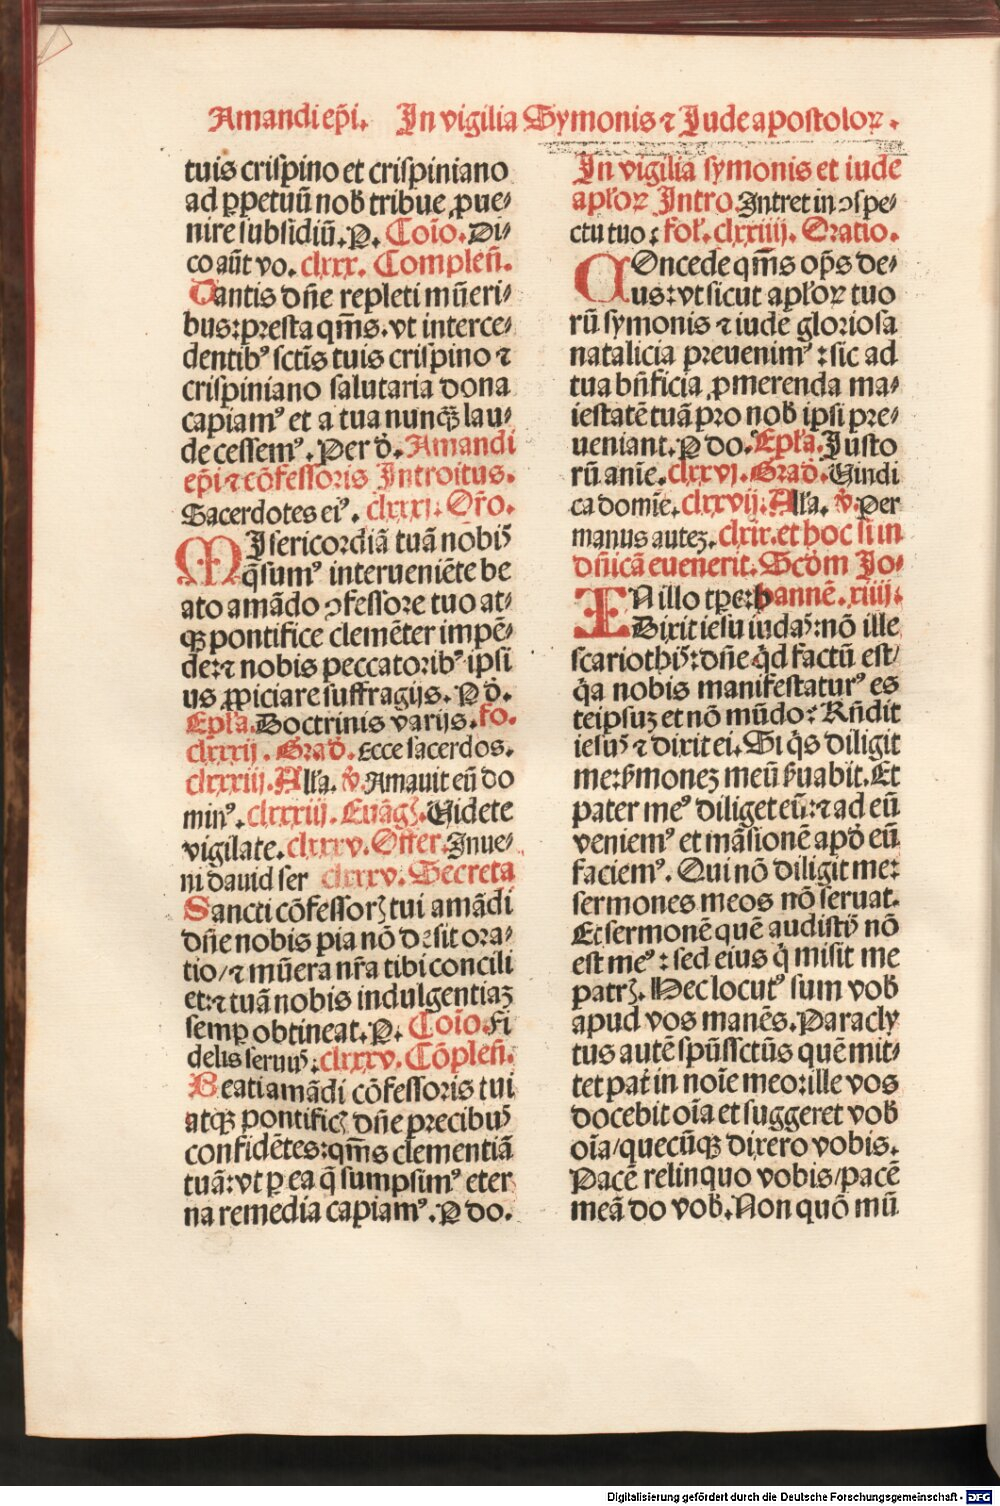 Amandi ep̄i. In vigilia Symonis ⁊ Jude apostoloꝝ.
tuis crispino et crispiniano
ad ꝑpetuū nob̄ tribue ꝓue⸗
nire subsidiū. P. Cōio. Di⸗
co aūt vo. clxxx. Compleñ.
Tantis dn̄e repleti mūeri⸗
bus: presta qm̄s. vt interce⸗
dentibꝰ sctīs tuis crispino ⁊
crispiniano salutaria dona
capiamꝰ et a tua nunqꝫ lau⸗
de cessemꝰ. Per d̄. Amandi
ep̄i ⁊ cōfessoris Introitus.
Sacerdotes eiꝰ. clxxxi. Or̄o.
MIsericordiā tuā nobis
q̄sumꝰ interueniēte be
ato amādo ↄfessore tuo at⸗
qꝫ pontifice clemēter impē⸗
de: ⁊ nobis peccatoribꝰ ipsi
us ꝓpiciare suffragijs. P d̄.
Epl̄a. Doctrinis varijs. fo.
clxxxij. Grad̄. Ecce sacerdos.
clxxxiij. All̄a. v̄. Amauit eū do
minꝰ. clxxxiij. Euāgꝭ. Uidete
vigilate. clxxxv. Offer. Inue⸗
ni dauid ser clxxxv. Secreta
Sancti cōfessorꝭ tui amādi
dn̄e nobis pia nō desit ora⸗
tio/ ⁊ mūera nr̄a tibi concili
et: ⁊ tuā nobis indulgentiaꝫ
semꝑ obtineat. P. Cōio. Fi
delis seruus: clxxxv. Cōpleñ.
Beati amādi cōfessoris tui
atqꝫ pontificꝭ dn̄e precibus
confidētes: qm̄s clementiā
tuā: vt ꝑ ea q̄ sumpsimꝰ eter
na remedia capiamꝰ. P do.
In vigilia symonis et iude
apl̄oꝝ Intro. Intret in ↄspe⸗
ctu tuo: fol̄. clxxiiij. Oratio.
COncede qm̄s op̄s de⸗
us: vt sicut apl̄oꝝ tuo
rū symonis ⁊ iude gloriosa
natalicia preuenimꝰ: sic ad
tua bn̄ficia ꝓmerenda ma⸗
iestatē tuā pro nob̄ ipsi pre⸗
ueniant. P do. Epl̄a. Justo
rū anīe. clxxvi. Grad̄. Uindi
ca domīe. clxxvij. All̄a. v̄. Per
manus auteꝫ. clxix. et hoc si in
dn̄icā euenerit. Scd̄m Jo⸗
IN illo tꝑe: hannē. xiiij.
Dixit iesu iudas: nō ille
scariothis: dn̄e qd̄ factū est/
q̄a nobis manifestaturꝰ es
teipsuꝫ et nō mūdo? Rn̄dit
iesus ⁊ dixit ei. Si q̄s diligit
me: s̄moneꝫ meū s̄uabit. Et
pater meꝰ diliget eū: ⁊ ad eū
veniemꝰ et māsionē apd̄ eū
faciemꝰ. Qui nō diligit me:
sermones meos nō seruat.
Et sermonē quē audistis nō
est meꝰ: sed eius q̄ misit me
patrꝭ. Hec locutꝰ sum vob̄
apud vos manēs. Paracly
tus autē spūssctūs quē mit⸗
tet pat̄ in noīe meo: ille vos
docebit oīa et suggeret vob̄
oīa/ quecūqꝫ dixero vobis.
Pacē relinquo vobis/ pacē
meā do vob̄. Non quō mū
Digitalisierung gefördert durch die Deutsche Forschungsgemeinschaft - DFG